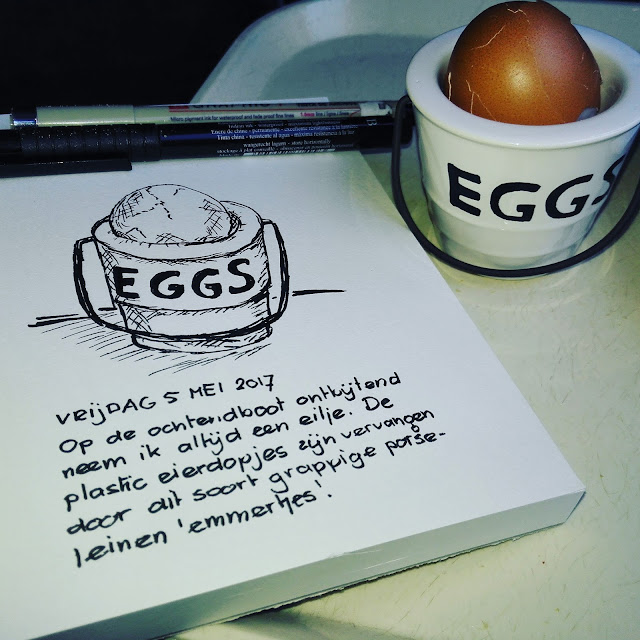 EGGS
EGGS
VRIJDAG 5 MEI 2017
Op de ochtendboot ontbijtend
neem ik altijd een eitje. De
plastic eierdopjes zijn vervangen
door dit soort grappige porse-
leinen 'emmertjes'.